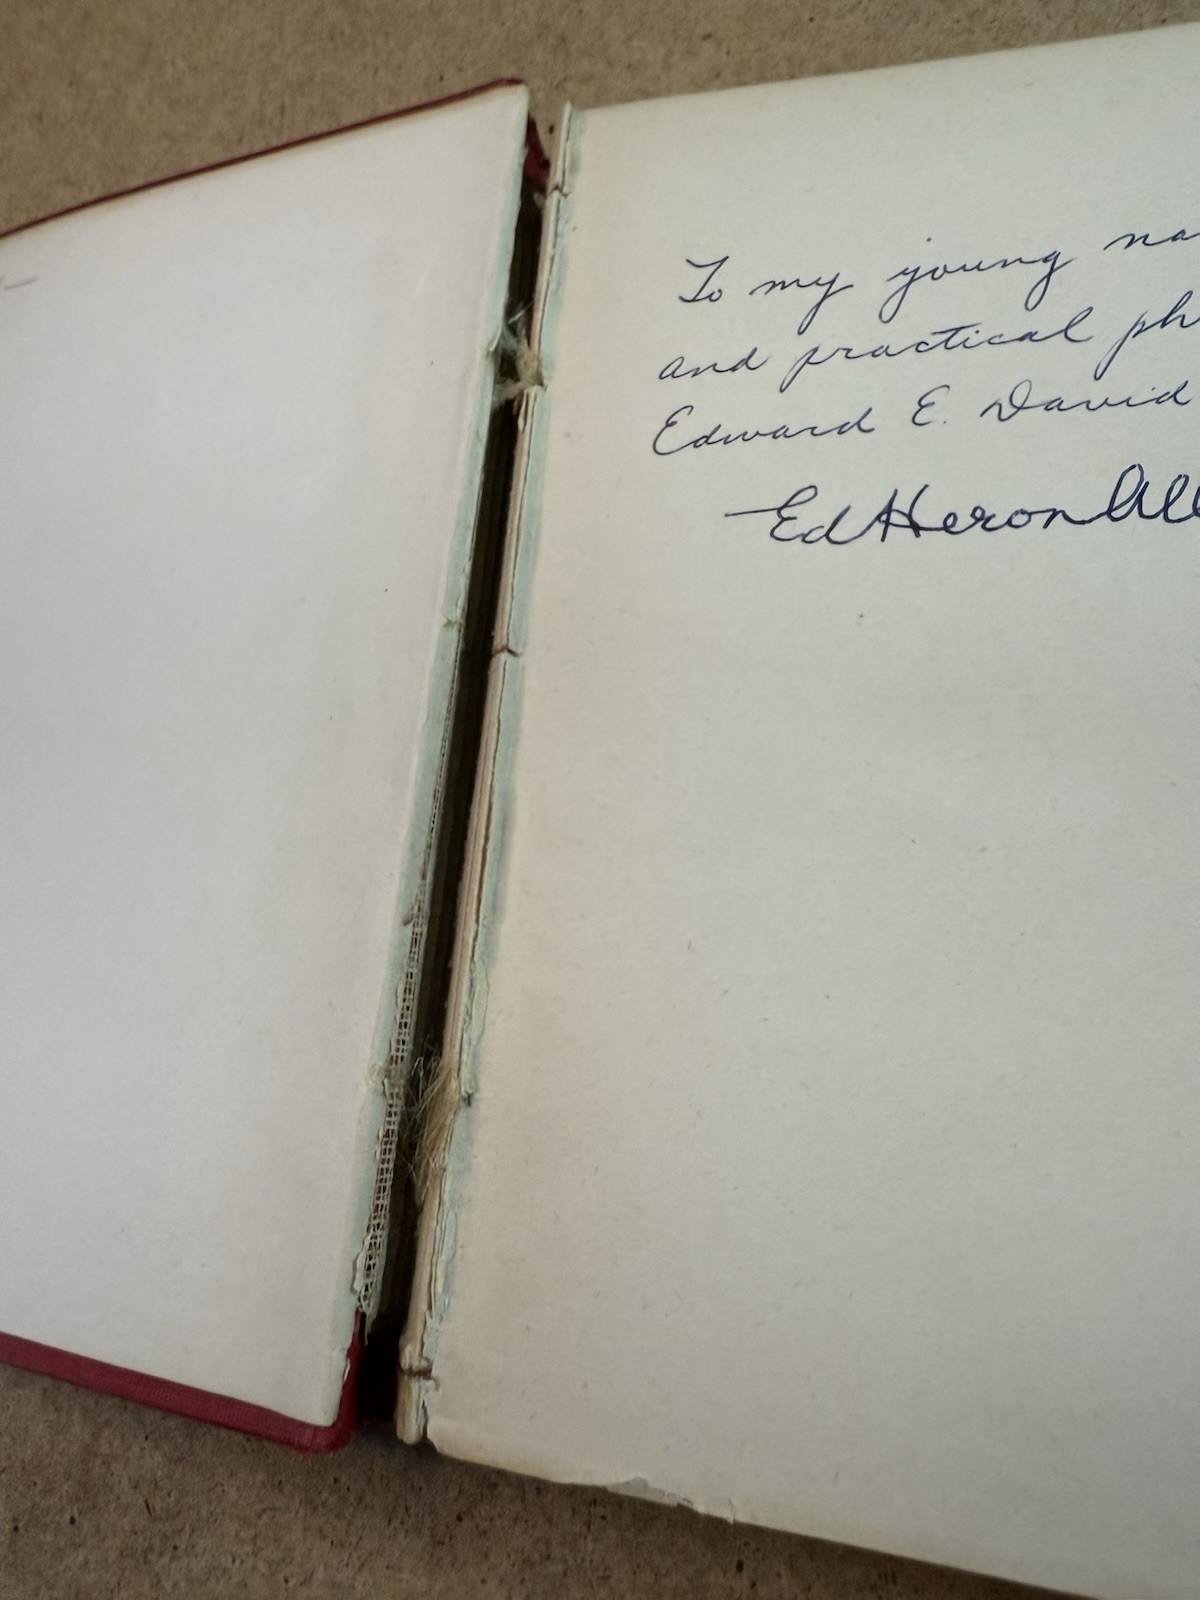 To my young na
and practical ph
Edward E. David
Ed Heron All